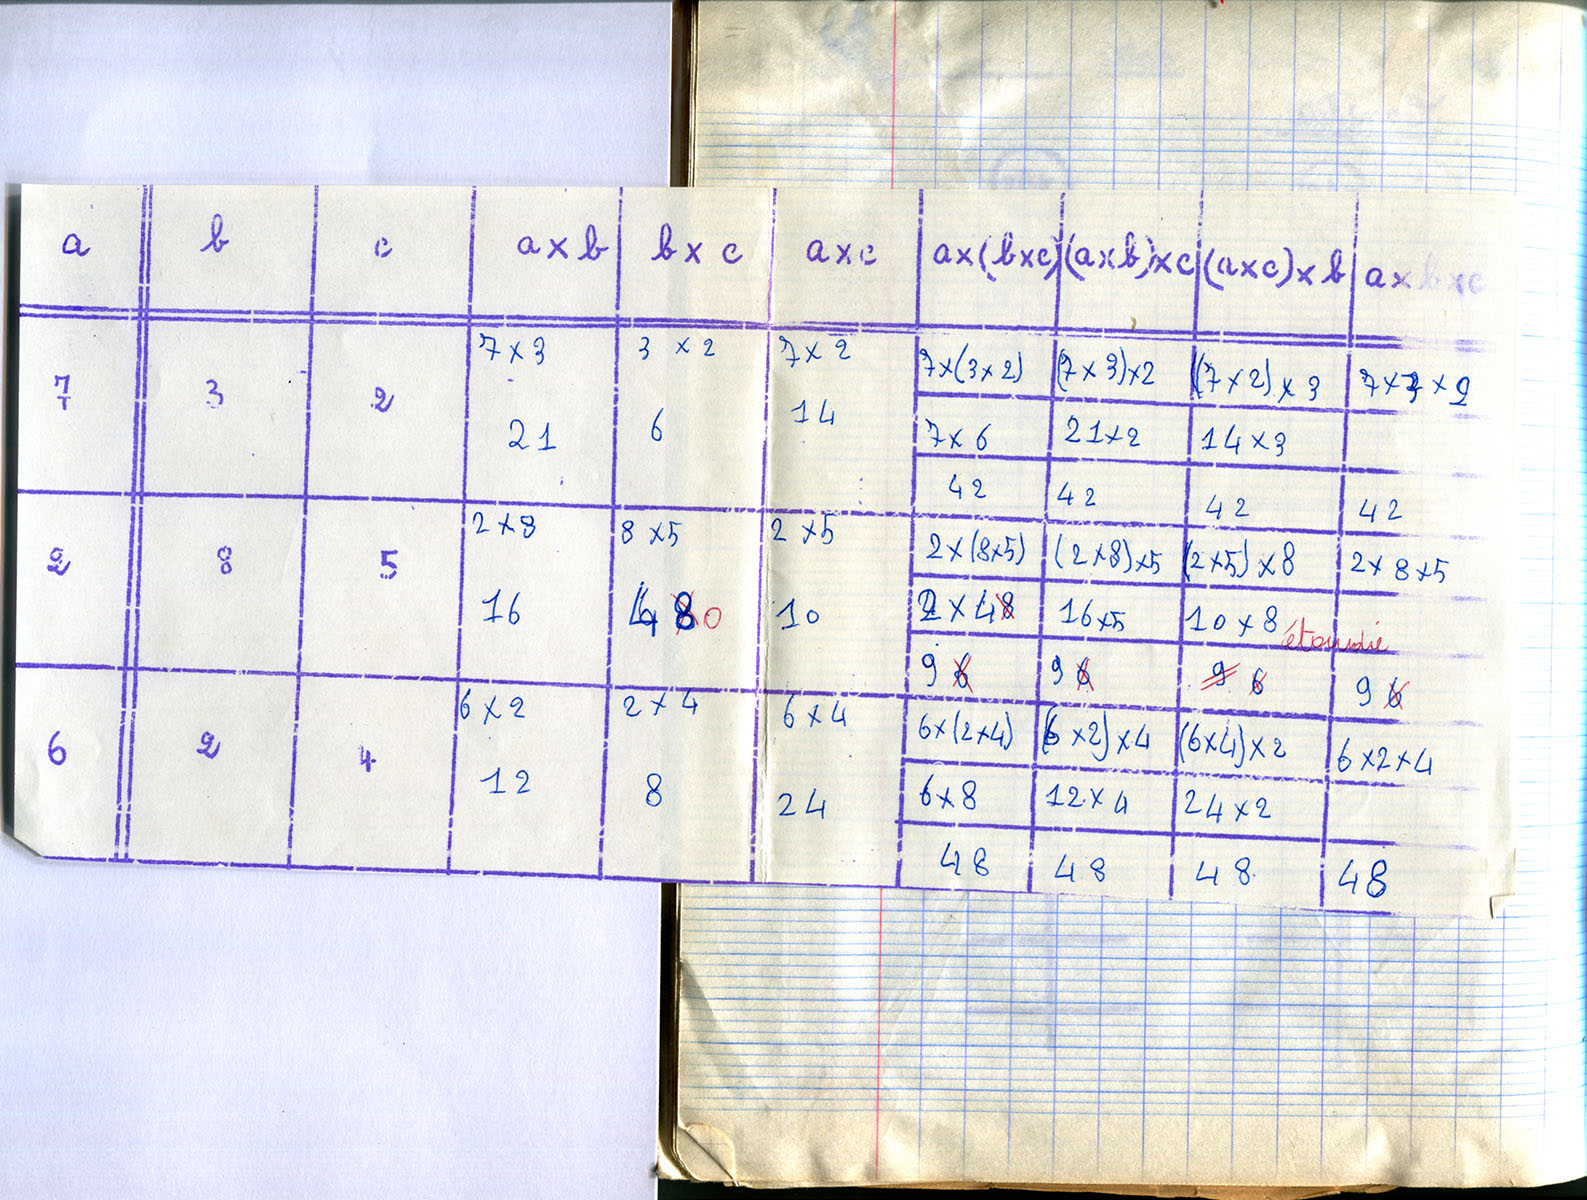 a b c a×b b×c a×c a×(b×c) (a×b)×c (a×c)×b a×b×c
7×3 3×2 7×2 7×(3×2) (7×3)×2 (7×2)×3 7×3×2
7 3 2 21 6 14 7×6 21×2 14×3
42 42 42 42
2×8 8×5 2×5 2×(8×5) (2×8)×5 (2×5)×8 2×8×5
2 8 5 16 480 10 2×48 16×5 10×8 étourdie
96 96 96 96
6×2 2×4 6×4 6×(2×4) (6×2)×4 (6×4)×2 6×2×4
6 2 4 12 8 24 6×8 12×4 24×2
48 48 48 48